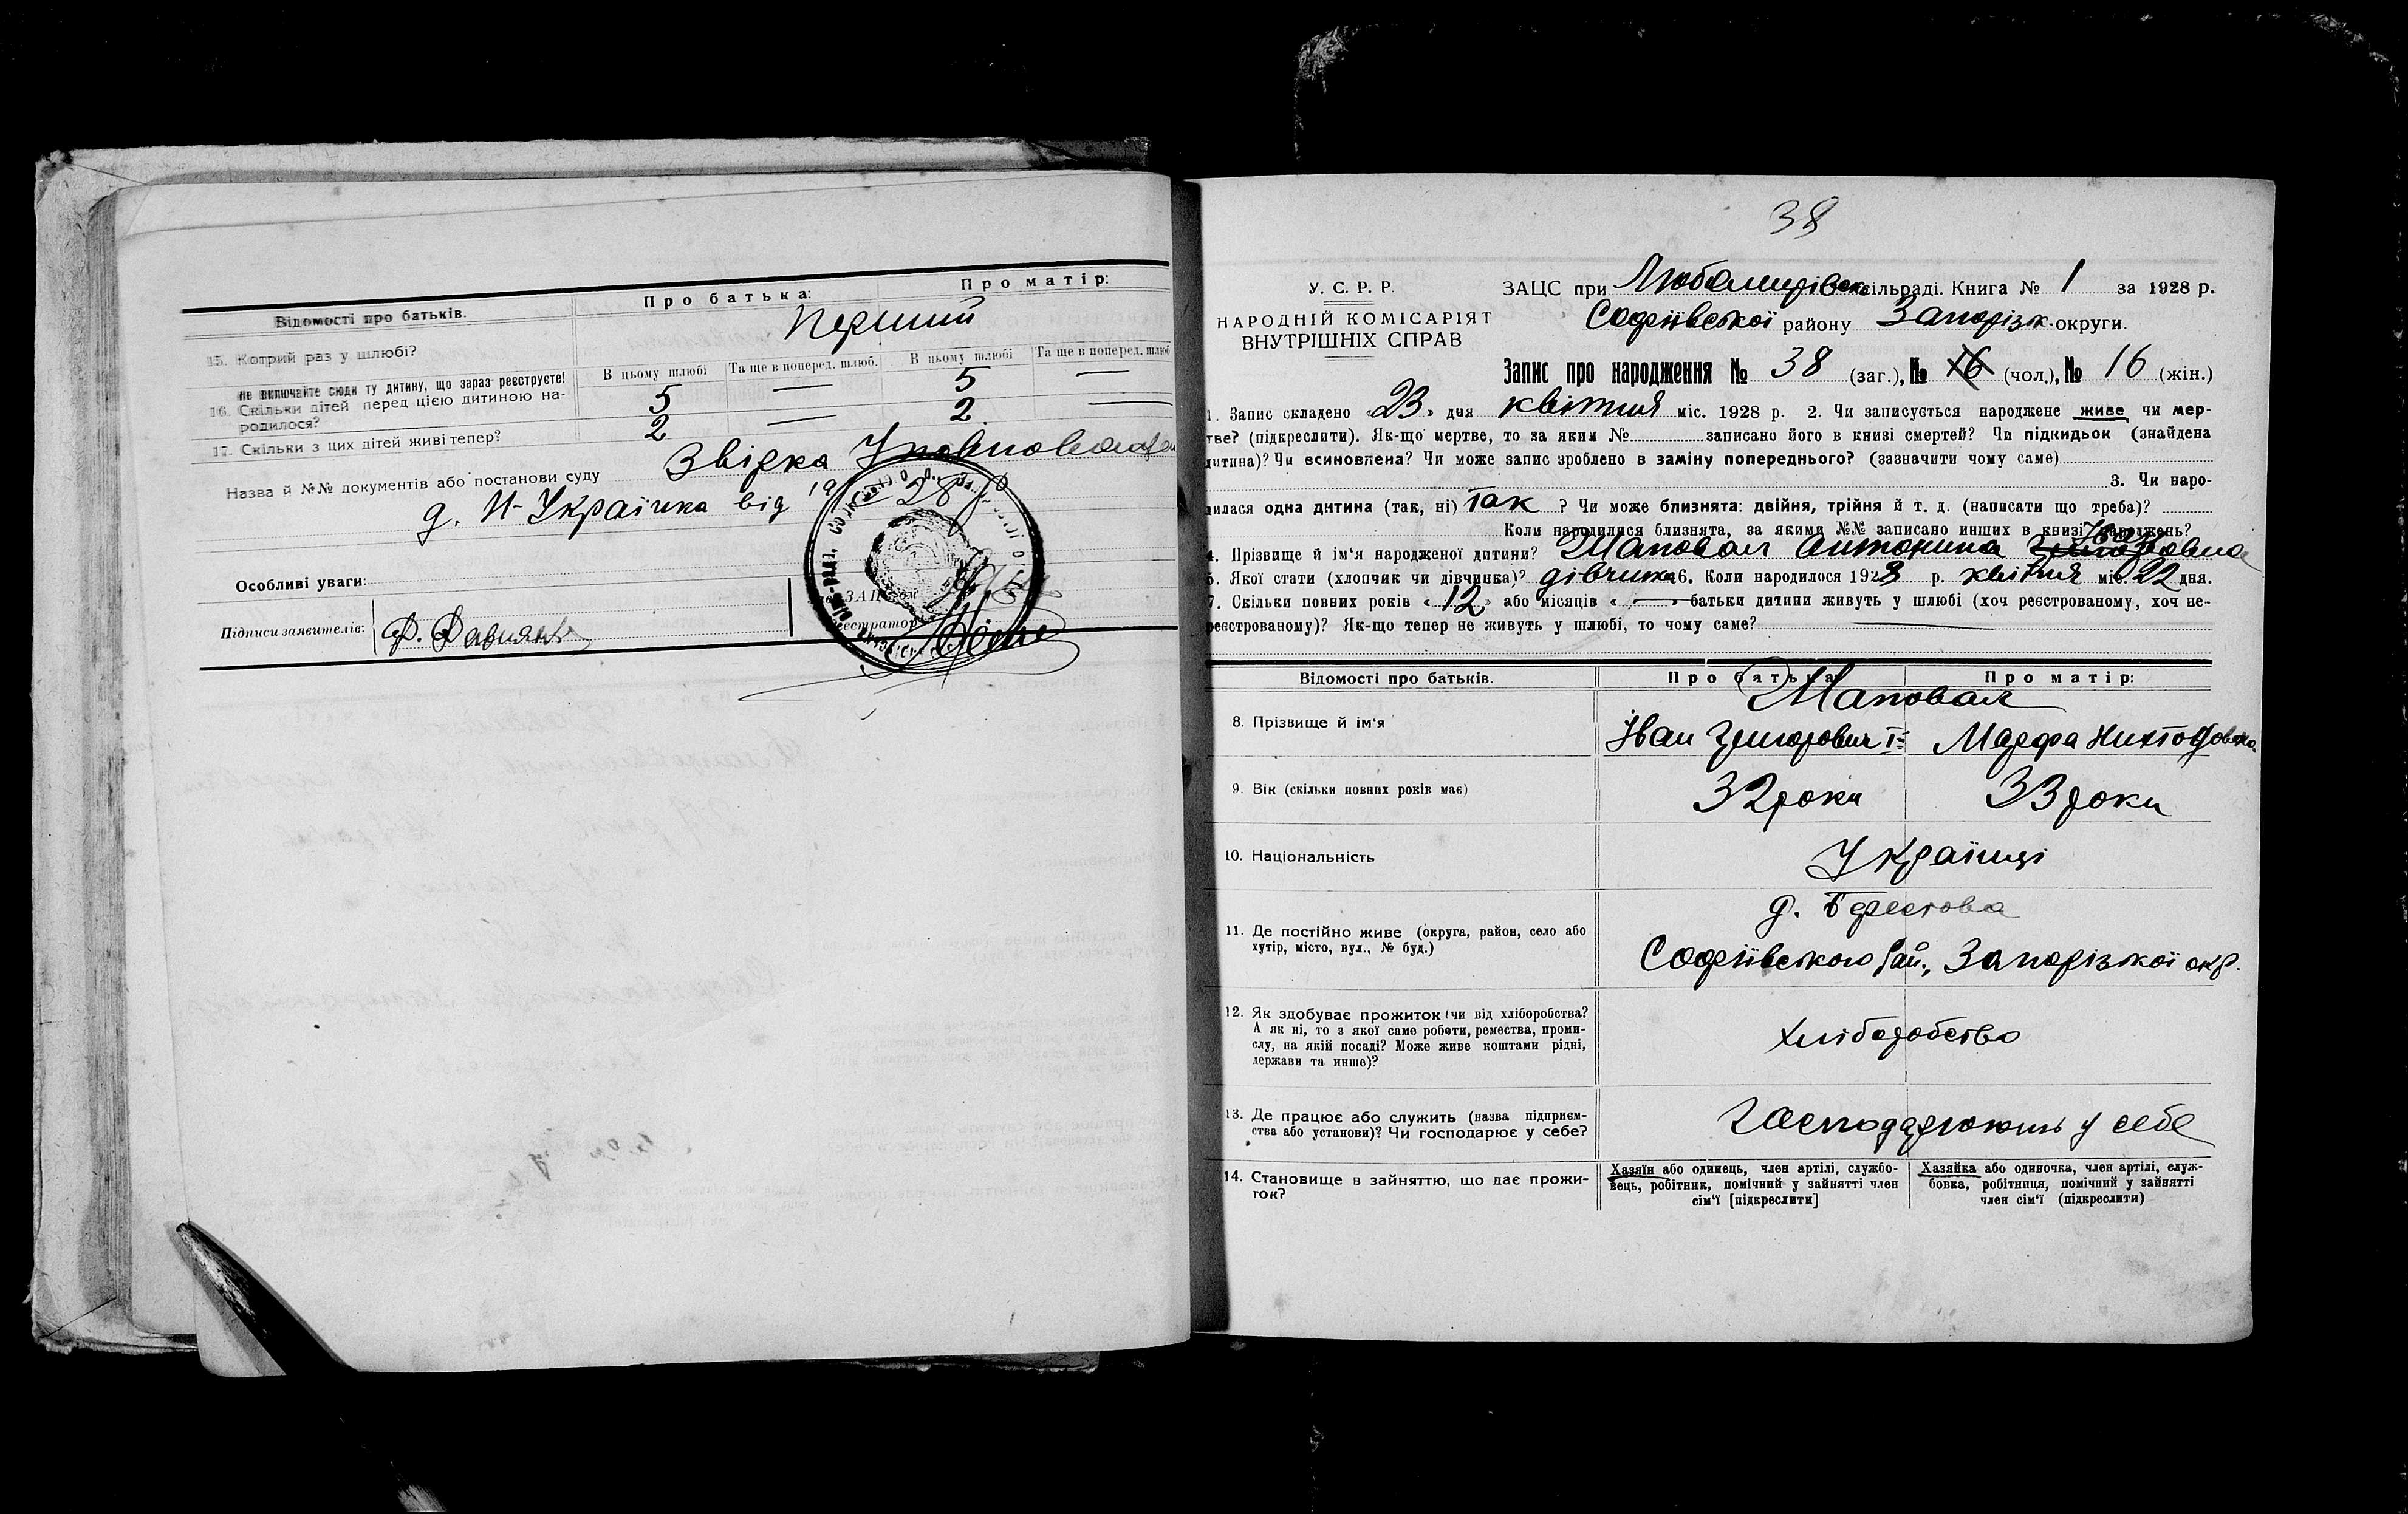 Відомості про батьків.
Про батька:
Про матір:
15. Котрий раз у шлюбі?
Перший
Не включайте сюди ту дитину, що зараз реєструєте!
В цьому шлюбі
Та ще в поперед. шлюб.
В цьому шлюбі
Та ще в поперед. шлюб
16. Скільки дітей перед цією дитиною на-
родилося?
5 — 5 —
17. Скільки з цих дітей живі тепер?
2 — 2 —
Назва й №№ документів або постанови суду Звірка Уповноваж
д. Н-Українка від 19 28
Особливі уваги:
Підписи заявителів:
38
У. С. Р. Р.
НАРОДНІЙ КОМІСАРІЯТ
ВНУТРІШНІХ СПРАВ
ЗАЦС при Любомирівськ сільраді. Книга № 1 за 1928 р.
Софіївської району Запорізьк. округи.
Запис про народження № 38 (заг.), № 16 (чол.), № 16 (жін.)
1. Запис складено «23» дня квітня міс. 1928 р. 2. Чи записується народжене живе чи мер-
тве? (підкреслити). Як-що мертве, то за яким № записано його в книзі смертей? Чи підкидьок (знайдена
дитина)? Чи всиновлена? Чи може запис зроблено в заміну попереднього? (зазначити чому саме)
3. Чи наро-
дилася одна дитина (так, ні) Так ? Чи може близнята: двійня, трійня й т. д. (написати що треба)?
Коли народилися близнята, за якими №№ записано инших в книзі народжень?
4. Прізвище й ім'я народженої дитини? Шаповал Антонина Іван
5. Якої стати (хлопчик чи дівчинка)? дівчинка 6. Коли народилося 1928 р. квітня міс. 22 дня.
7. Скільки повних років «12» або місяців « — » батьки дитини живуть у шлюбі (хоч реєстрованому, хоч не-
реєстрованому)? Як-що тепер не живуть у шлюбі, то чому саме? —
Відомості про батьків.
Про батька
Про матір:
8. Прізвище й ім'я
Шаповал
Іван Григорович І-
Марфа
9. Вік (скільки повних років має)
32 роки
33 роки
10. Національність
Українці
11. Де постійно живе (округа, район, село або
хутір, місто, вул., № буд.)
д. Берестова
Софіївського рай., Запорізької окр.
12. Як здобуває прожиток (чи від хліборобства?
А як ні, то з якої саме роботи, ремества, проми-
слу, на якій посаді? Може живе коштами рідні,
держави та инше)?
хліборобство
13. Де працює або служить (назва підприєм-
ства або установи)? Чи господарює у себе?
Господарюють у себе
14. Становище в зайняттю, що дає прожи-
ток?
Хазяїн або одинець, член артілі, службо-
вець, робітник, помічний у зайнятті член
сім'ї [підкреслити]
Хазяйка або одиночка, член артілі, служ-
бовка, робітниця, помічний у зайнятті
член сім'ї (підкреслити)